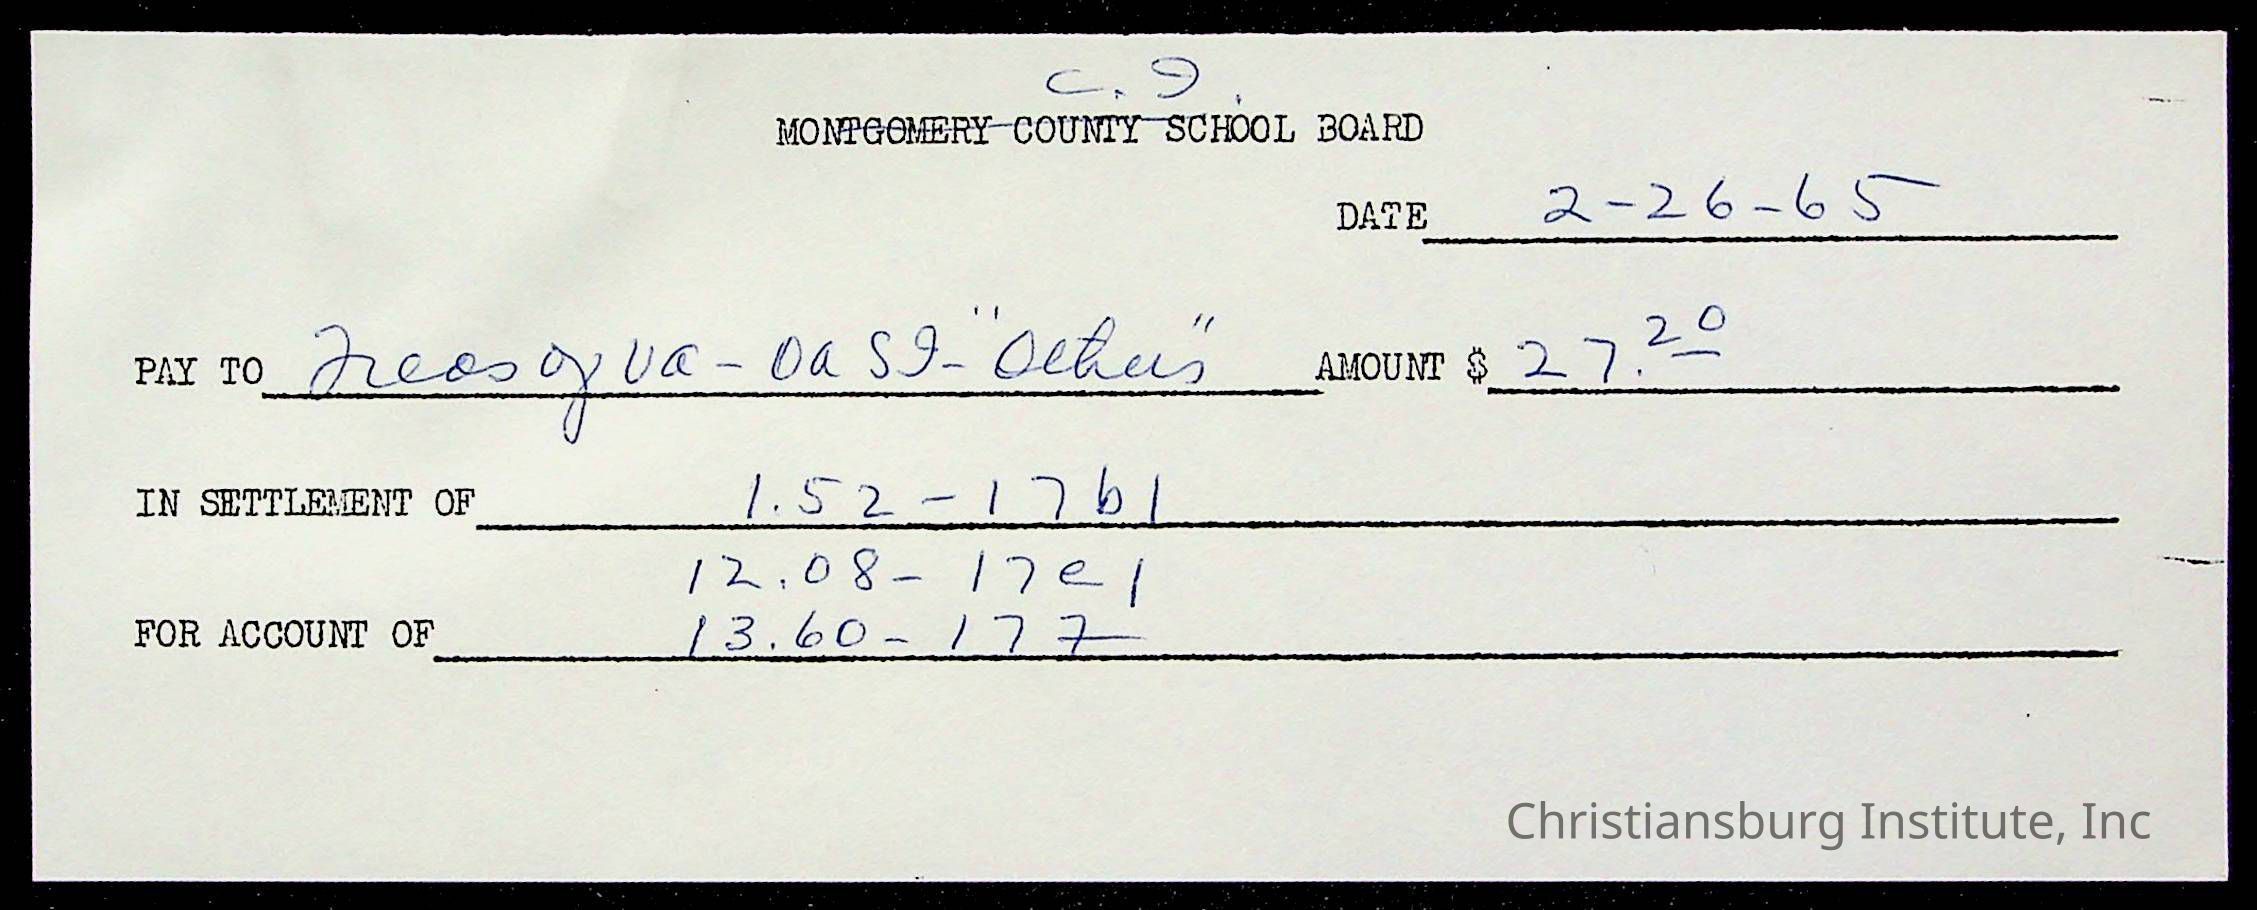 C. I.
MONTGOMERY COUNTY SCHOOL BOARD
DATE 2-26-65
PAY TO Treas of Va - OASI - "Others" AMOUNT $ 27.20
IN SETTLEMENT OF 1.52 - 17b1
12.08 - 17e1
FOR ACCOUNT OF 13.60 - 177
Christiansburg Institute, Inc